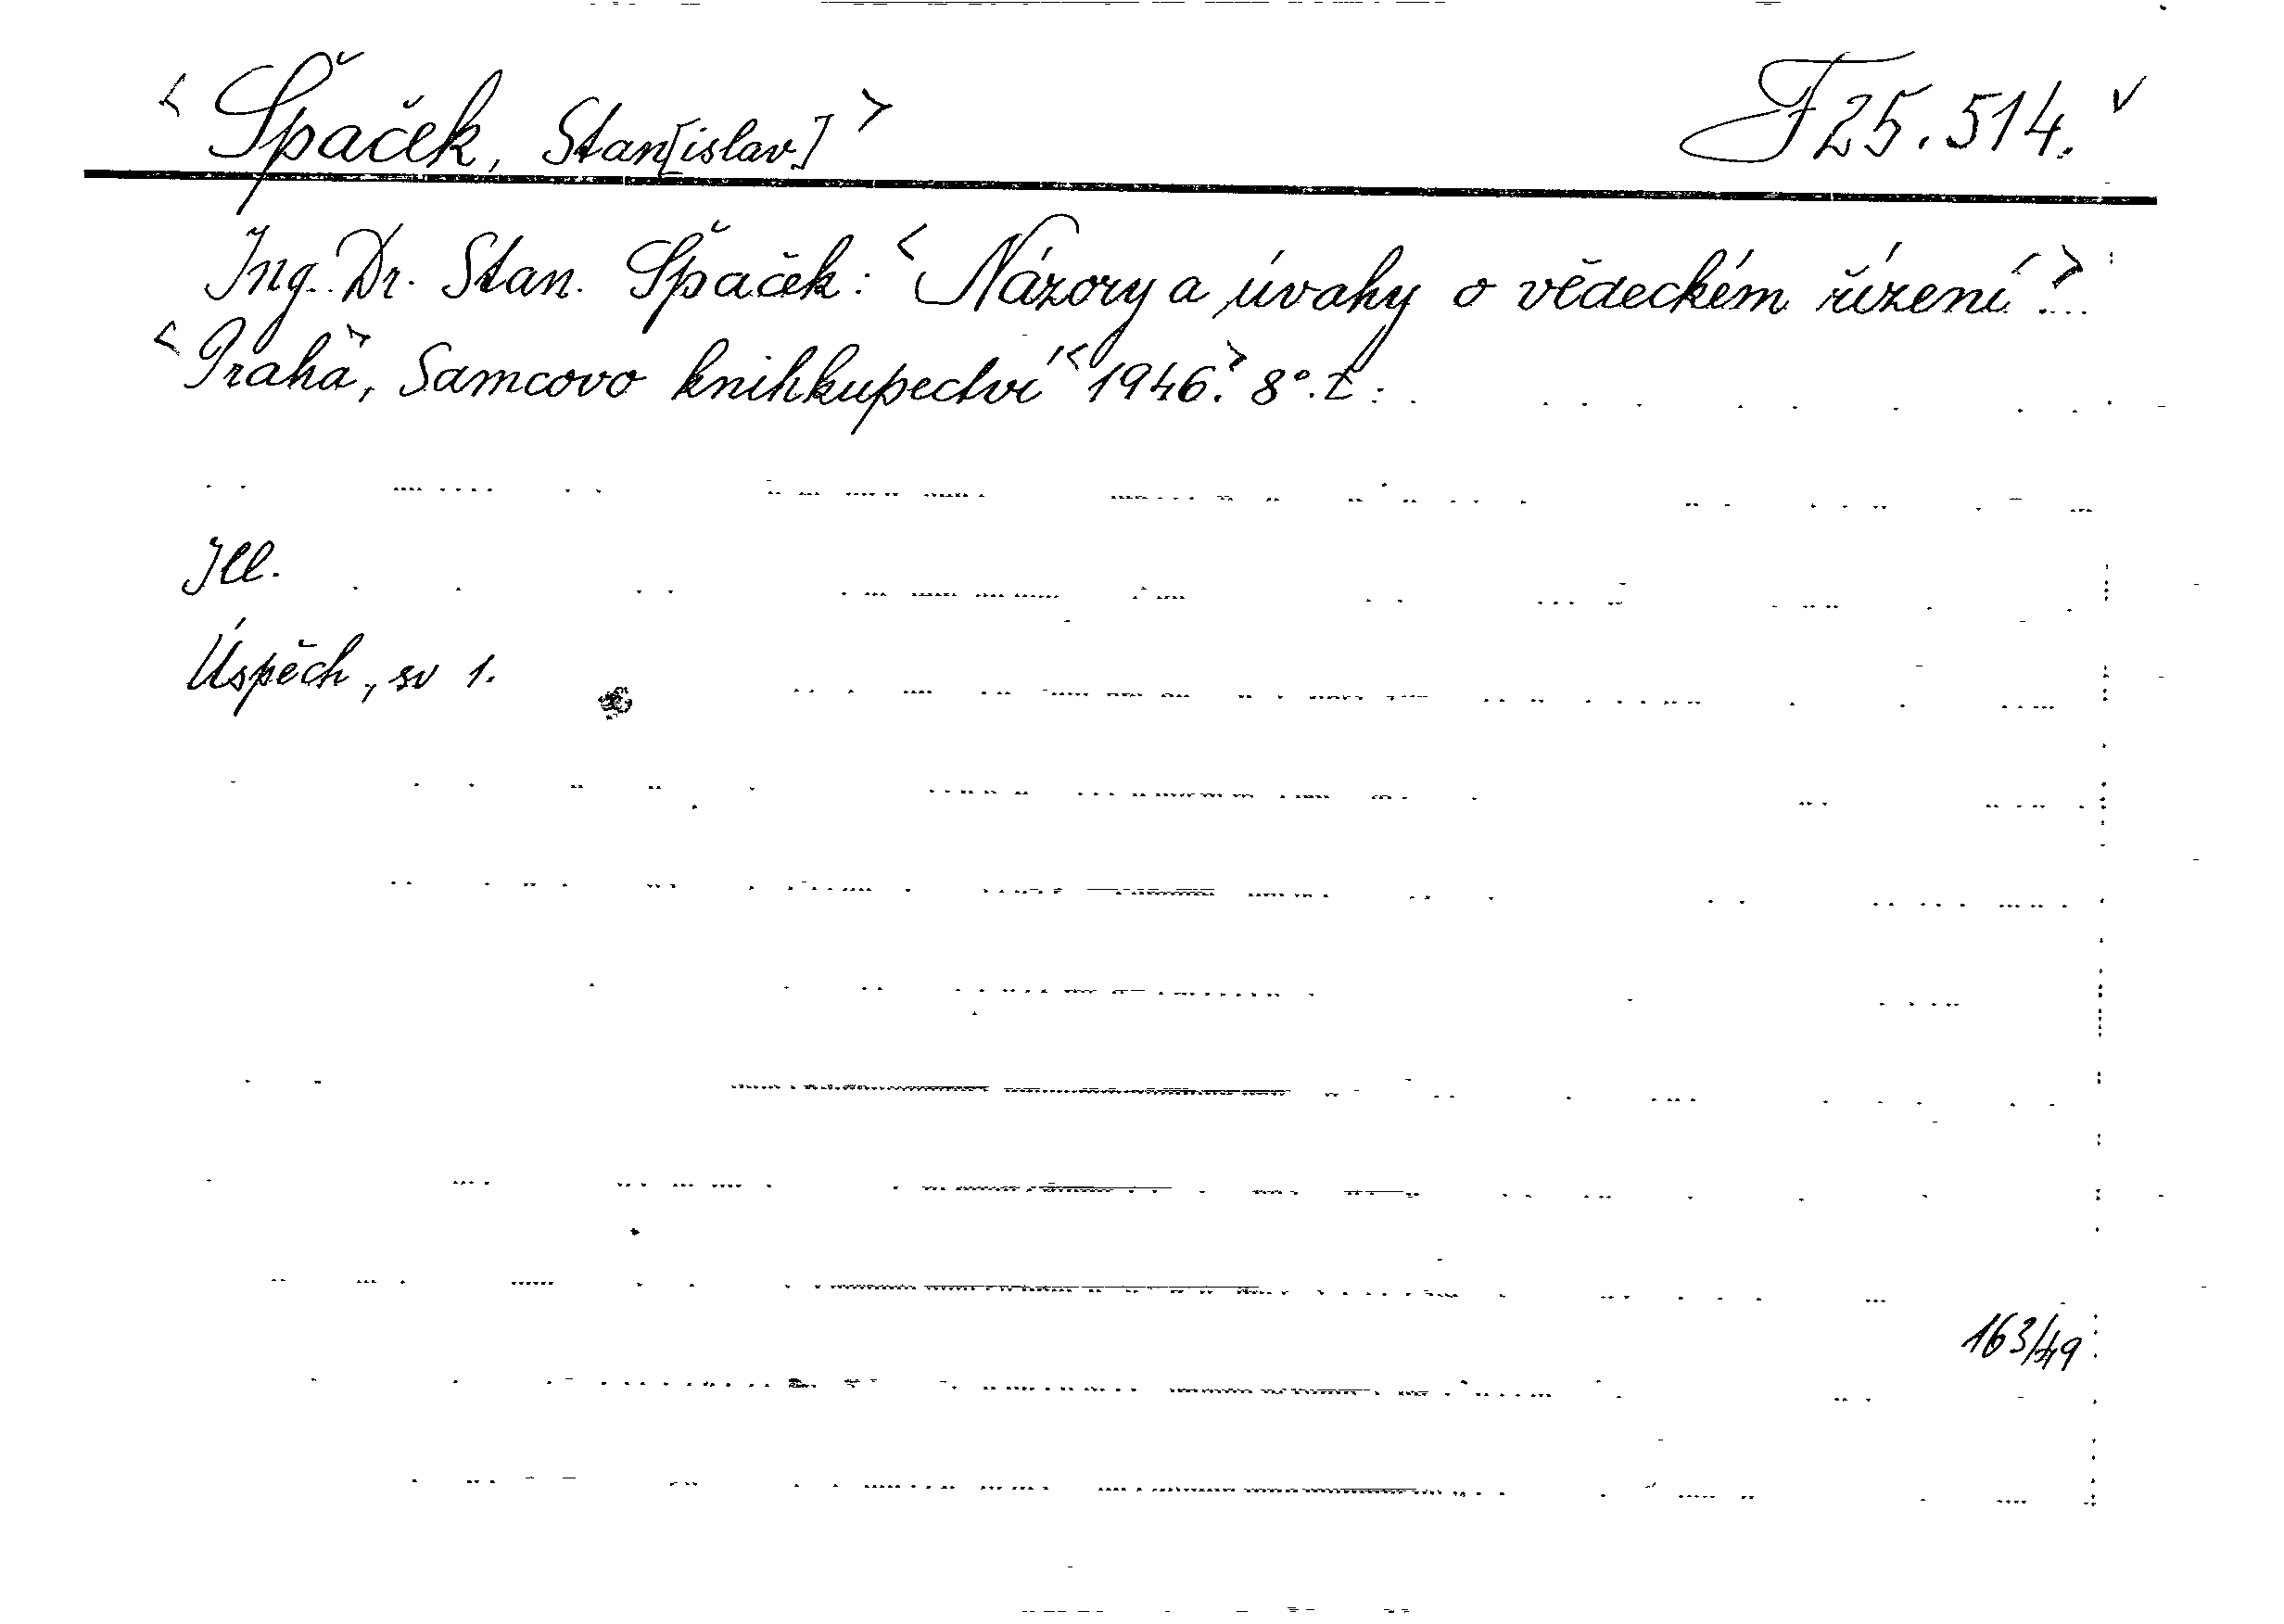 < Špaček, Stan[islav] > F 25.514. v
Ing. Dr. Stan. Špaček: < Názory a úvahy o vědeckém řízení > ...
< Praha >, Samcovo knihkupectví < 1946 >. 8°.
Ill.
Úspěch, sv 1.
163/49